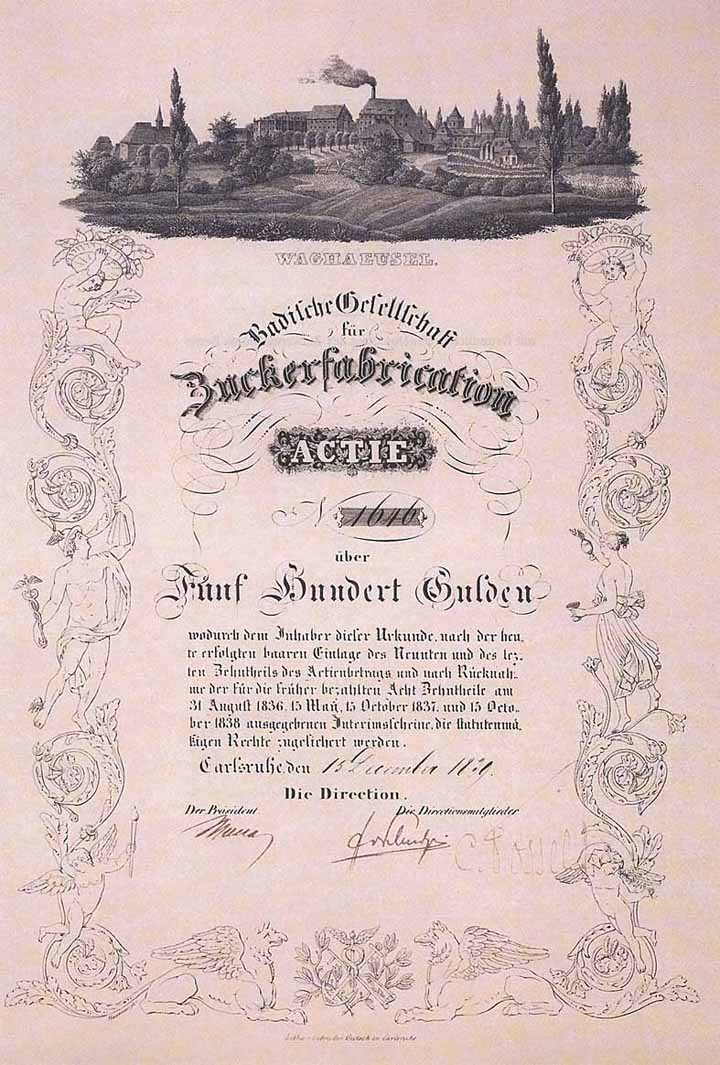 WAGHAEUSEL.
Badische Gesellschaft
für
Zuckerfabrication
ACTIE
N 1646
über
Fünf Hundert Gulden
wodurch dem Inhaber dieser Urkunde, nach der heu,
te erfolgten baaren Einlage des Neunten und des lez,
ten Zehntheils des Actienbetrags und nach Rücknah,
me der für die früher bezahlten Acht Zehntheile am
31 August 1836, 15 May, 15 October 1837, und 15 Octo,
ber 1838 ausgegebenen Interimsscheine, die statutenmä,
ßigen Rechte zugesichert werden.
Carlsruhe, den 15 December 1839.
Die Direction.
Der Präsident Die Directionsmitglieder
in Carlsruhe